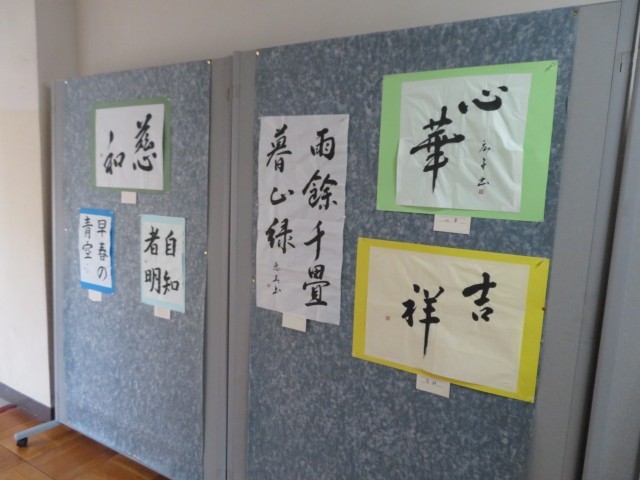 慈
和
早春の
青空
自知
者明
雨餘千疊
暮山緑
心
華
吉
祥